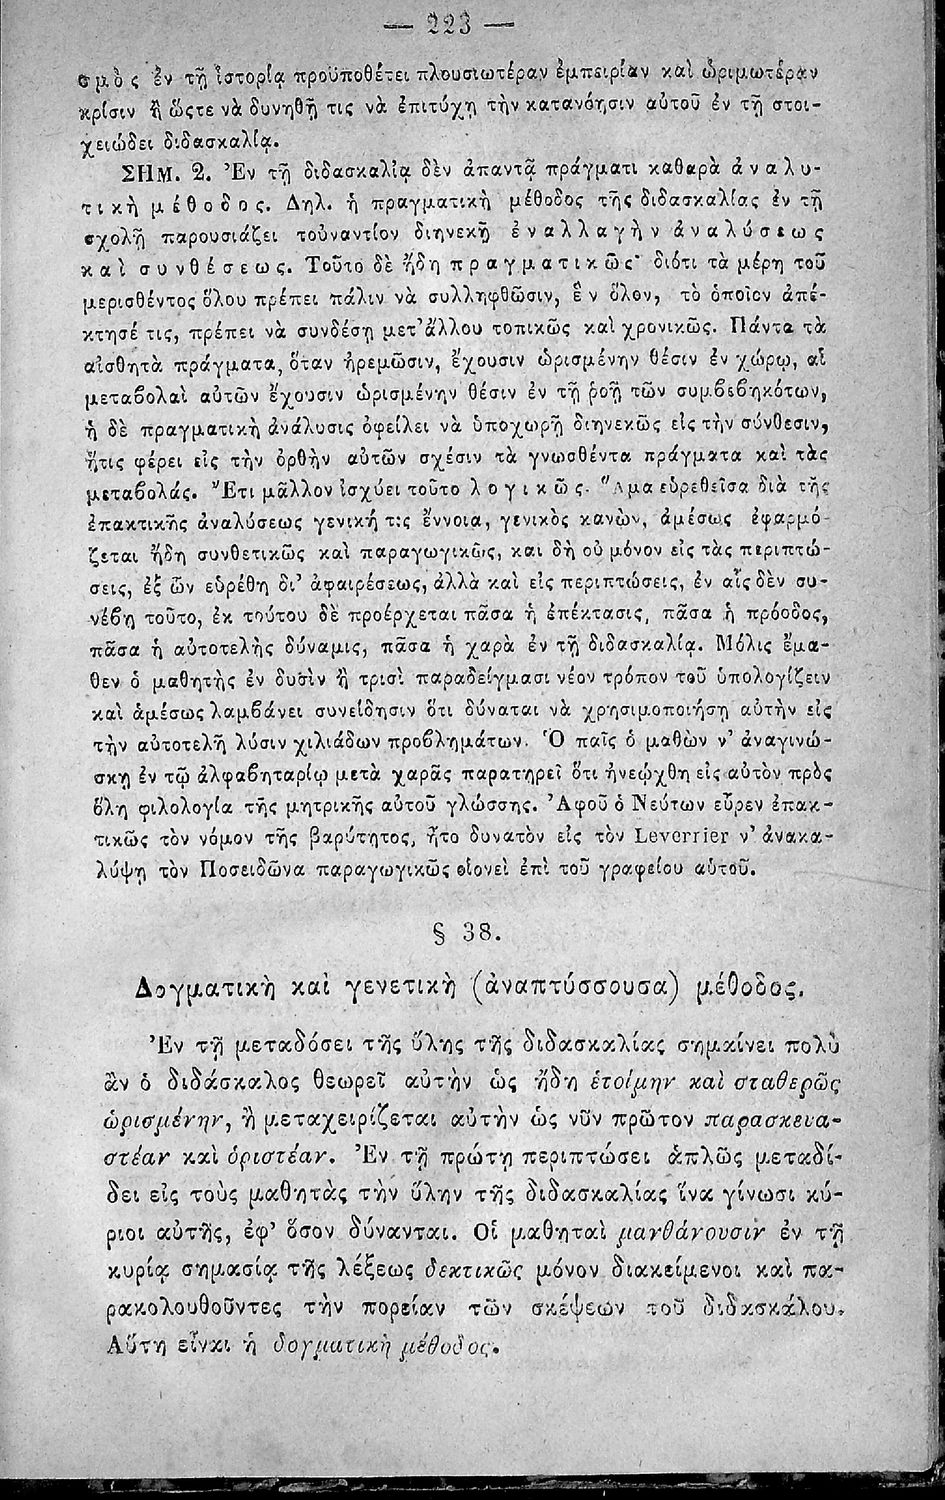 — 223 —
σμὸς ἐν τῇ ἱστορίᾳ προϋποθέτει πλουσιωτέραν ἐμπειρίαν καὶ ὡριμωτέραν
κρίσιν ἢ ὥςτε νὰ δυνηθῇ τις νὰ ἐπιτύχῃ τὴν κατανόησιν αὐτοῦ ἐν τῇ στοι-
χειώδει διδασκαλίᾳ.
ΣΗΜ. 2. Ἐν τῇ διδασκαλίᾳ δὲν ἀπαντᾷ πράγματι καθαρὰ ἀναλυ-
τικὴ μέθοδος. Δηλ. ἡ πραγματικὴ μέθοδος τῆς διδασκαλίας ἐν τῇ
σχολῇ παρουσιάζει τοὐναντίον διηνεκῆ ἐναλλαγὴν ἀναλύσεως
καὶ συνθέσεως. Τοῦτο δὲ ἤδη πραγματικῶς· διότι τὰ μέρη τοῦ
μερισθέντος ὅλου πρέπει πάλιν νὰ συλληφθῶσιν, ἓν ὅλον, τὸ ὁποῖον ἀπέ-
κτησέ τις, πρέπει νὰ συνδέσῃ μετ' ἄλλου τοπικῶς καὶ χρονικῶς. Πάντα τὰ
αἰσθητὰ πράγματα, ὅταν ἠρεμῶσιν, ἔχουσιν ὡρισμένην θέσιν ἐν χώρῳ, αἱ
μεταβολαὶ αὐτῶν ἔχουσιν ὡρισμένην θέσιν ἐν τῇ ῥοῇ τῶν συμβεβηκότων,
ἡ δὲ πραγματικὴ ἀνάλυσις ὀφείλει νὰ ὑποχωρῇ διηνεκῶς εἰς τὴν σύνθεσιν,
ἥτις φέρει εἰς τὴν ὀρθὴν αὐτῶν σχέσιν τὰ γνωσθέντα πράγματα καὶ τὰς
μεταβολάς. Ἔτι μᾶλλον ἰσχύει τοῦτο λογικῶς. Ἅμα εὑρεθεῖσα διὰ τῆς
ἐπακτικῆς ἀναλύσεως γενική τις ἔννοια, γενικὸς κανών, ἀμέσως ἐφαρμό-
ζεται ἤδη συνθετικῶς καὶ παραγωγικῶς, καὶ δὴ οὐ μόνον εἰς τὰς περιπτώ-
σεις, ἐξ ὧν εὑρέθη δι' ἀφαιρέσεως, ἀλλὰ καὶ εἰς περιπτώσεις, ἐν αἷς δὲν συ-
νέβη τοῦτο, ἐκ τούτου δὲ προέρχεται πᾶσα ἡ ἐπέκτασις, πᾶσα ἡ πρόοδος,
πᾶσα ἡ αὐτοτελὴς δύναμις, πᾶσα ἡ χαρὰ ἐν τῇ διδασκαλίᾳ. Μόλις ἔμα-
θεν ὁ μαθητὴς ἐν δυσὶν ἢ τρισὶ παραδείγμασι νέον τρόπον τοῦ ὑπολογίζειν
καὶ ἀμέσως λαμβάνει συνείδησιν ὅτι δύναται νὰ χρησιμοποιήσῃ αὐτὴν εἰς
τὴν αὐτοτελῆ λύσιν χιλιάδων προβλημάτων. Ὁ παῖς ὁ μαθὼν ν' ἀναγινώ-
σκῃ ἐν τῷ ἀλφαβηταρίῳ μετὰ χαρᾶς παρατηρεῖ ὅτι ἠνεῴχθη εἰς αὐτὸν πρὸς
ὅλη φιλολογία τῆς μητρικῆς αὐτοῦ γλώσσης. Ἀφοῦ ὁ Νεύτων εὗρεν ἐπακ-
τικῶς τὸν νόμον τῆς βαρύτητος, ἦτο δυνατὸν εἰς τὸν Leverrier ν' ἀνακα-
λύψῃ τὸν Ποσειδῶνα παραγωγικῶς οἱονεὶ ἐπὶ τοῦ γραφείου αὑτοῦ.
§ 38.
Δογματικὴ καὶ γενετικὴ (ἀναπτύσσουσα) μέθοδος.
Ἐν τῇ μεταδόσει τῆς ὕλης τῆς διδασκαλίας σημαίνει πολὺ
ἂν ὁ διδάσκαλος θεωρεῖ αὐτὴν ὡς ἤδη ἑτοίμην καὶ σταθερῶς
ὡρισμένην, ἢ μεταχειρίζεται αὐτὴν ὡς νῦν πρῶτον παρασκευα-
στέαν καὶ ὁριστέαν. Ἐν τῇ πρώτῃ περιπτώσει ἁπλῶς μεταδί-
δει εἰς τοὺς μαθητὰς τὴν ὕλην τῆς διδασκαλίας ἵνα γίνωσι κύ-
ριοι αὐτῆς, ἐφ' ὅσον δύνανται. Οἱ μαθηταὶ μανθάνουσιν ἐν τῇ
κυρίᾳ σημασίᾳ τῆς λέξεως δεκτικῶς μόνον διακείμενοι καὶ πα-
ρακολουθοῦντες τὴν πορείαν τῶν σκέψεων τοῦ διδασκάλου.
Αὕτη εἶναι ἡ δογματικὴ μέθοδος.